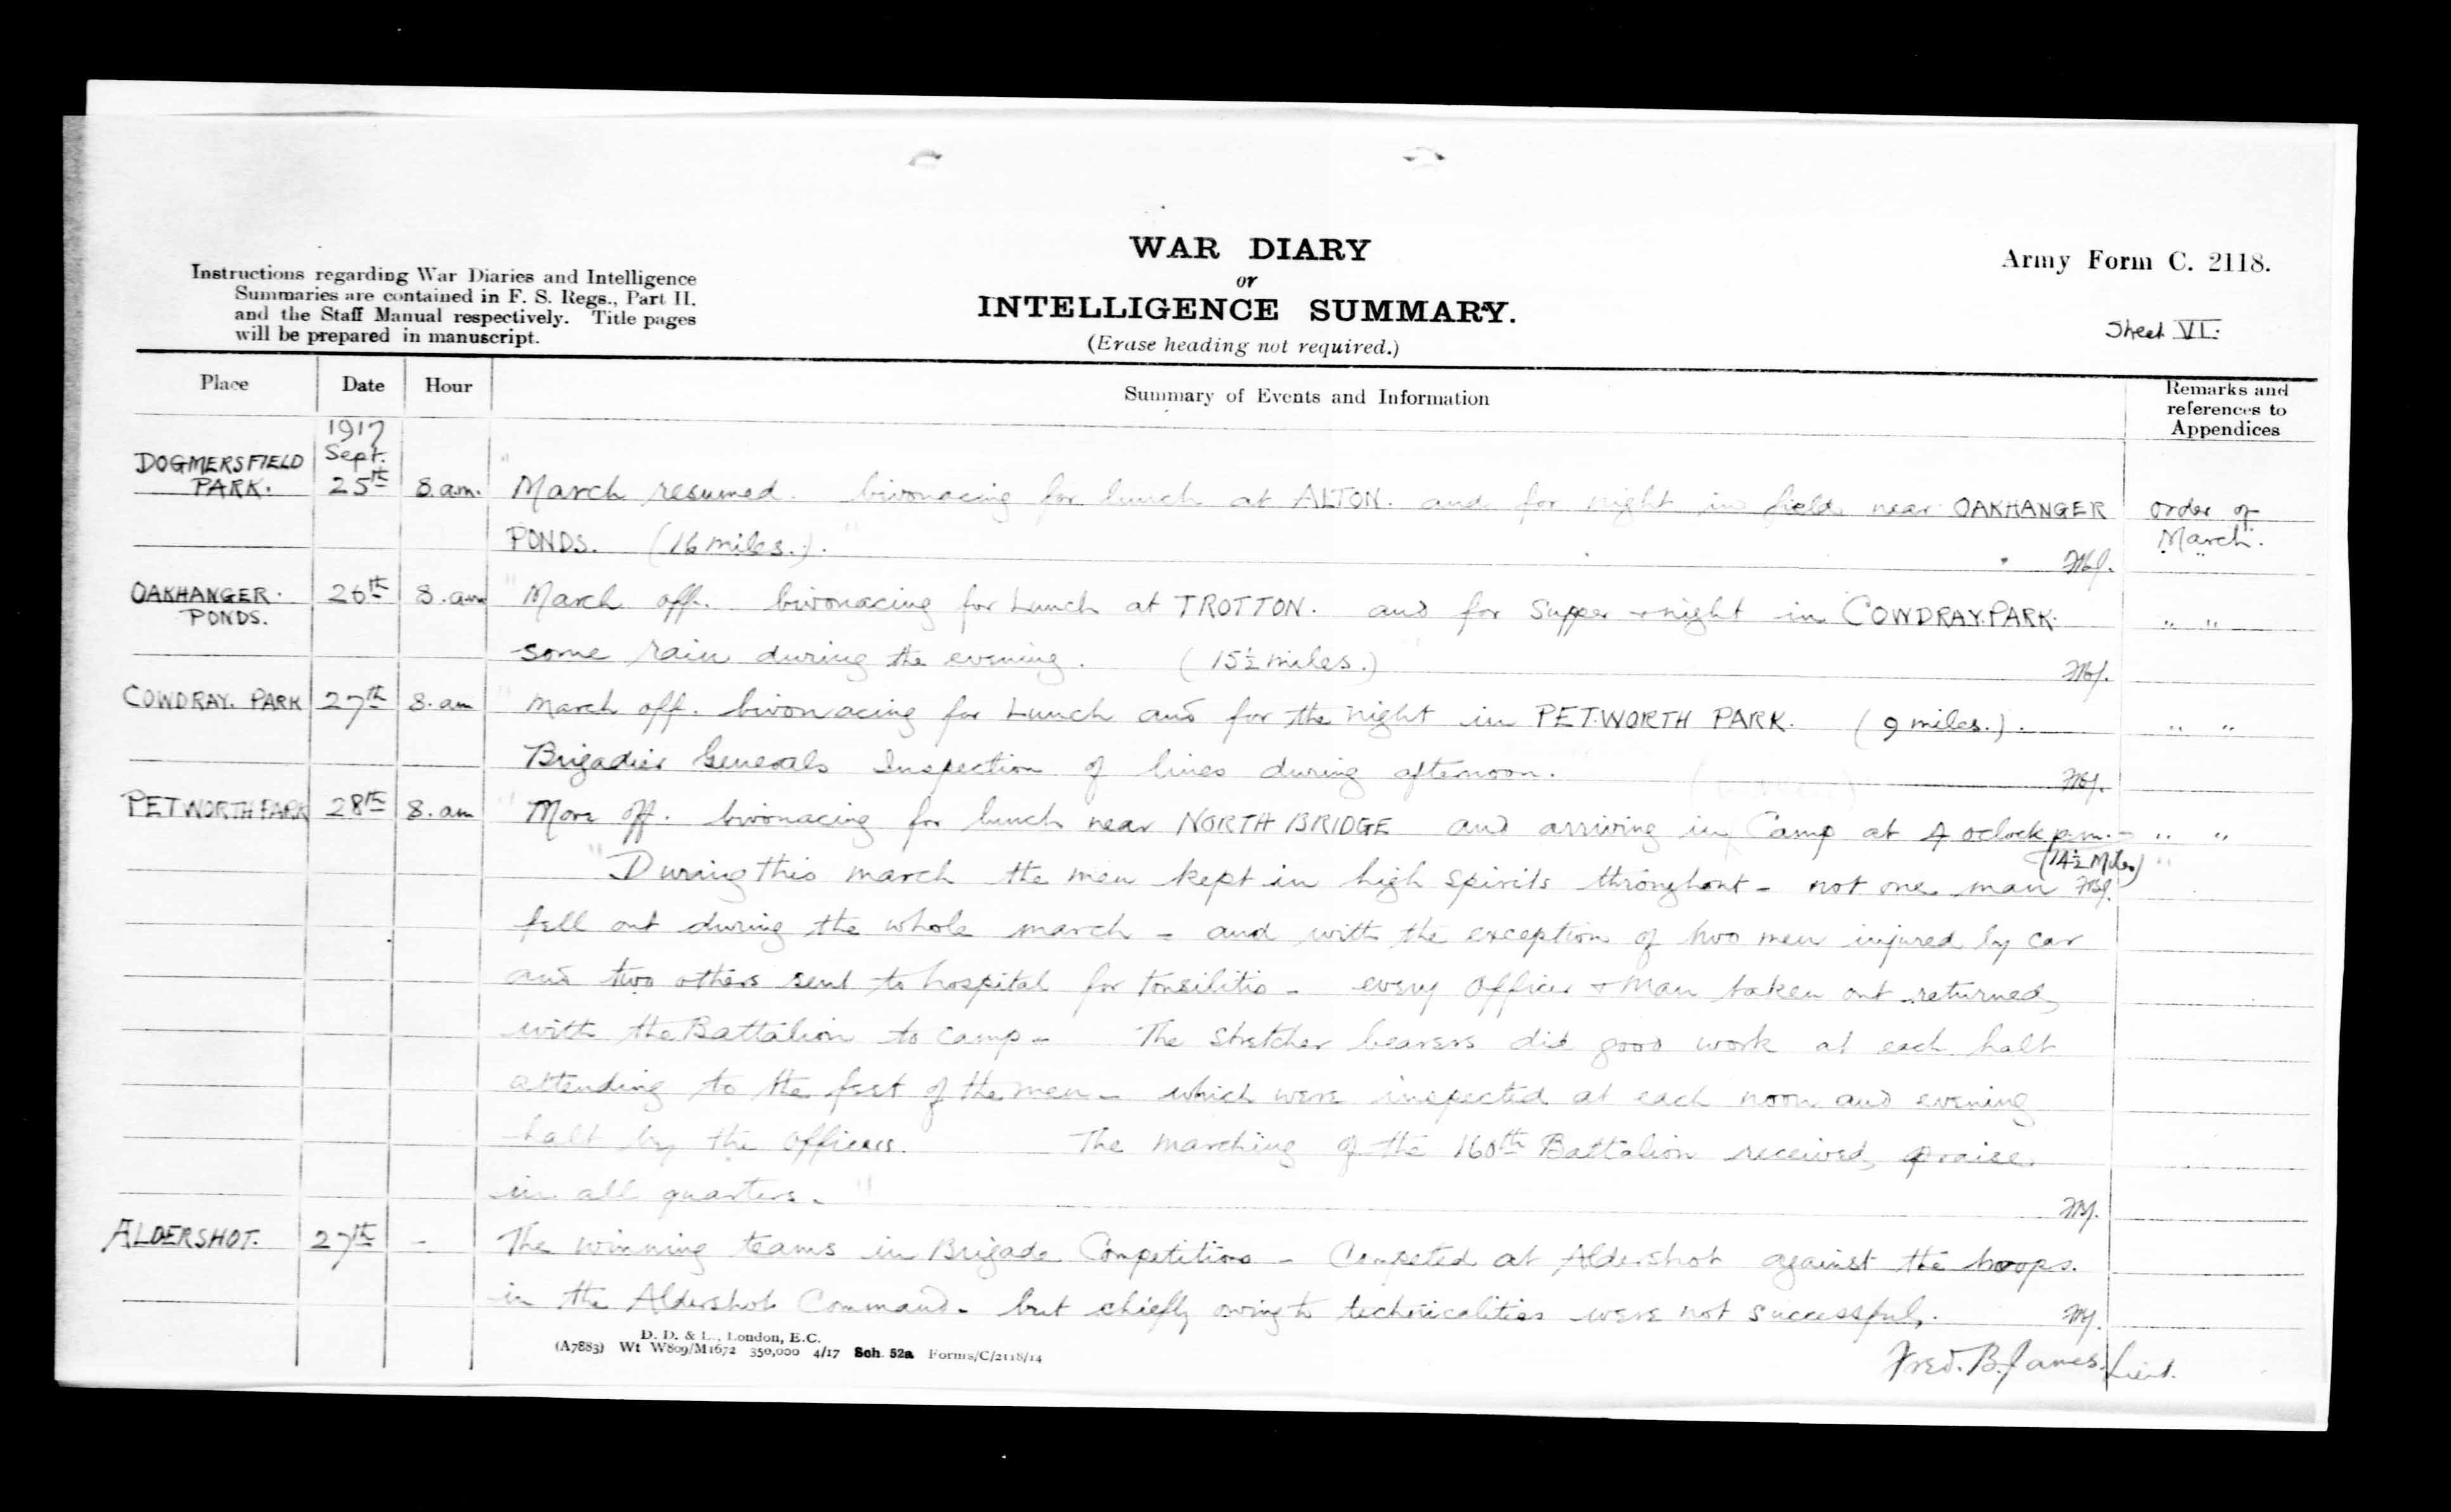 WAR DIARY
or
INTELLIGENCE SUMMARY.
(Erase heading not required.)
Army Form C. 2118.
Sheet VI.
Instructions regarding War Diaries and Intelligence
Summaries are contained in F. S. Regs., Part II.
and the Staff Manual respectively. Title pages
will be prepared in manuscript.
Place Date Hour Summary of Events and Information Remarks and
references to
Appendices
1917
Sept.
DOGMERSFIELD
PARK. 25th 8 a.m. "March resumed. bivonacing for lunch at ALTON. and for night in field near OAKHANGER Order of
PONDS. (16 miles.)." March.
FBJ. " "
OAKHANGER. 26th 8. am "March off. bivonacing for Lunch at TROTTON. and for Supper + night in COWDRAY.PARK. " "
PONDS.
some rain during the evening. (15½ miles.) FBJ.
COWDRAY. PARK 27th 8. am "March off. bivonacing for Lunch and for the night in PETWORTH PARK. (9 miles.). " "
Brigadier Generals Inspection of lines during afternoon. FBJ.
PETWORTH PARK 28th 8. am "Move off. bivonacing for lunch near NORTH BRIDGE and arriving in Camp at 4 oclock p.m. - " "
(14½ Miles) "
"During this march the men kept in high spirits throughout - not one man FBJ.
fell out during the whole march - and with the exception of two men injured by car
and two others sent to hospital for Tonsilitis - every Officer + Man taken out returned
with the Battalion to camp - The Stretcher bearers did good work at each halt
attending to the feet of the men - which were inspected at each noon and evening
halt by the Officers. The marching of the 160th Battalion received praise
in all quarters." FBJ.
ALDERSHOT. 27th - The winning teams in Brigade Competitions - Competed at Aldershot against the troops.
in the Aldershot Command - but chiefly owing to technicalities were not successful. FBJ.
D. D. & L., London, E.C.
(A7883) Wt W809/M1672 350,000 4/17 Sch. 52a Forms/C/2118/14
Fred. B. James. Lieut.